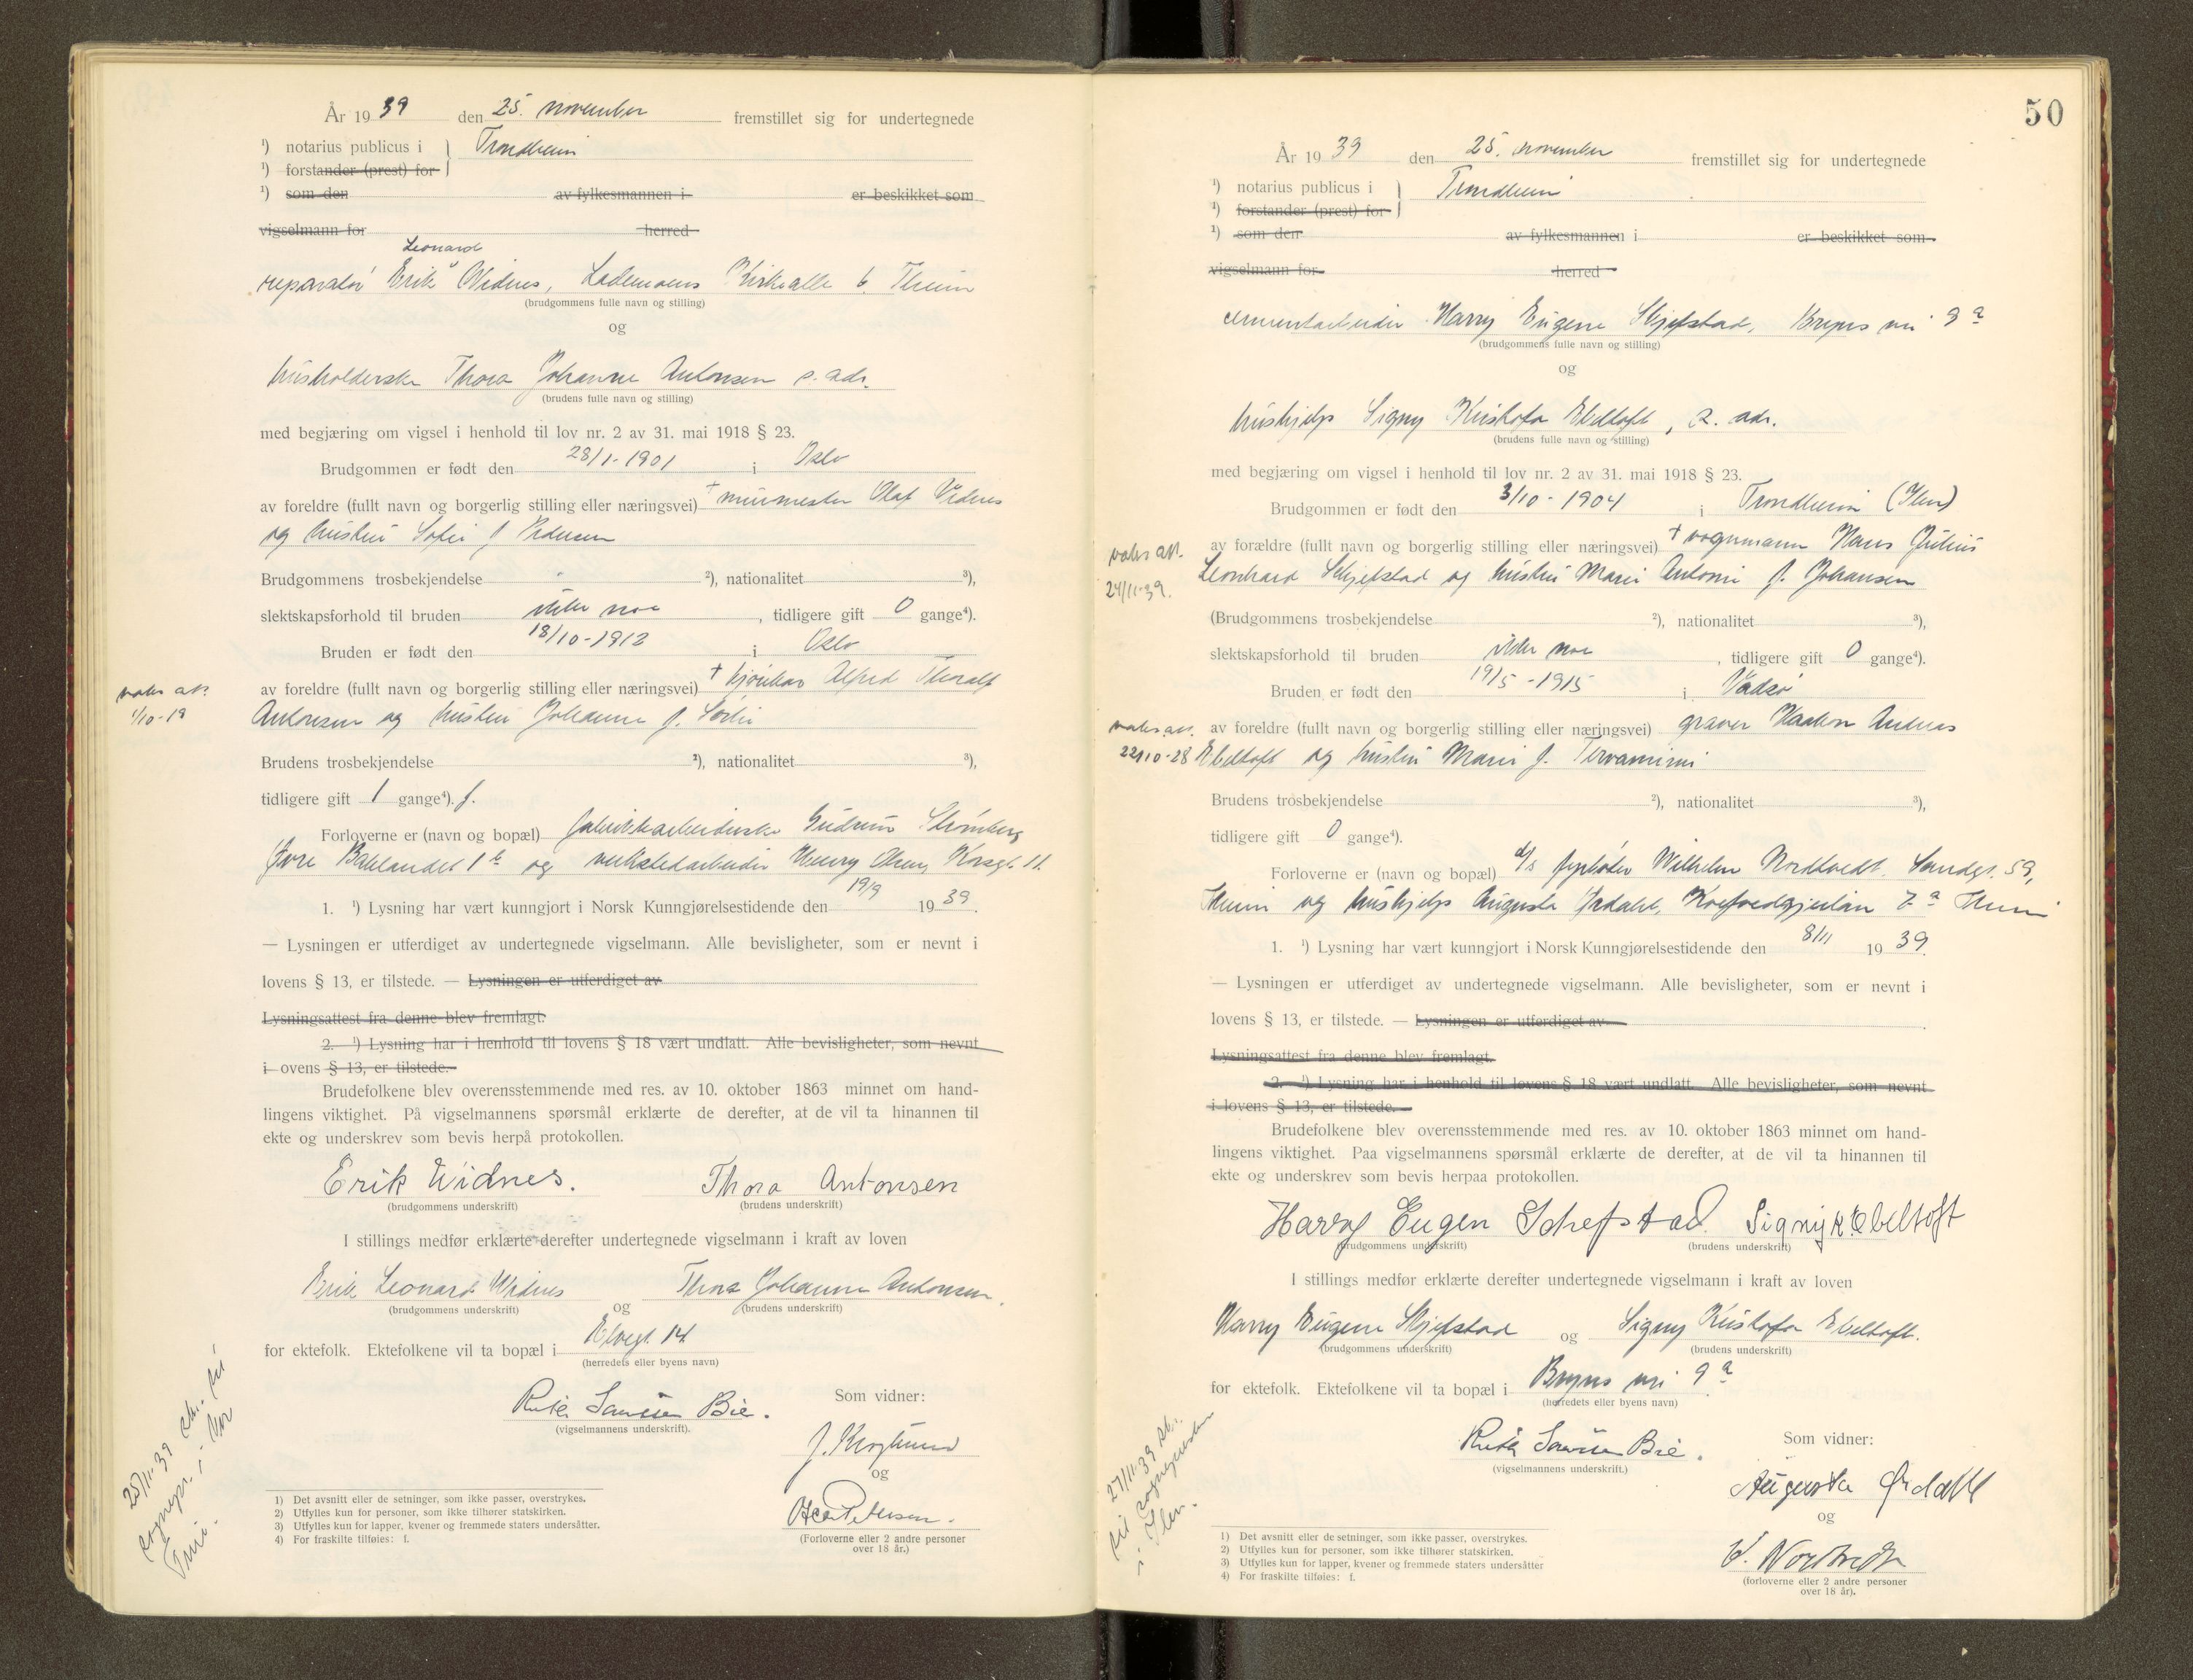 År 1939 den 25. november fremstillet sig for undertegnede
¹) notarius publicus i } Trondheim
¹) forstander (prest) for
¹) som den av fylkesmannen i er beskikket som
vigselmann for herred
Leonard
reparatør Erik Widnes, Lademoens Kirkealle 6. Theim
(brudgommens fulle navn og stilling)
og
husholderske Thora Johanne Antonsen s. adr.
(brudens fulle navn og stilling)
med begjæring om vigsel i henhold til lov nr. 2 av 31. mai 1918 § 23.
Brudgommen er født den 28/1-1901 i Oslo
av foreldre (fullt navn og borgerlig stilling eller næringsvei) † murmester Olaf Vidnes
og hustru Sofie f. Pedersen
Brudgommens trosbekjendelse ²), nationalitet ³),
slektskapsforhold til bruden ikke noe, tidligere gift 0 gange⁴).
Bruden er født den 18/10-1913 i Oslo
av foreldre (fullt navn og borgerlig stilling eller næringsvei) † Alfred Thoralf
1/10-19
Antonsen og hustru Johanne f.
Brudens trosbekjendelse ²), nationalitet ³),
tidligere gift 1 gange⁴). f.
Forloverne er (navn og bopæl) fabrikkarbeiderske Gudrun Strömberg
Øvre Bakklandet 1 b og verkstedarbeider Henry Olsen, Korsgt. 11.
1. ¹) Lysning har vært kunngjort i Norsk Kunngjørelsestidende den 19/9 1939.
— Lysningen er utferdiget av undertegnede vigselmann. Alle bevisligheter, som er nevnt i
lovens § 13, er tilstede. — Lysningen er utferdiget av
Lysningsattest fra denne blev fremlagt.
2. ¹) Lysning har i henhold til lovens § 18 vært undlatt. Alle bevisligheter, som nevnt
i ovens § 13, er tilstede.
Brudefolkene blev overensstemmende med res. av 10. oktober 1863 minnet om hand-
lingens viktighet. På vigselmannens spørsmål erklærte de derefter, at de vil ta hinannen til
ekte og underskrev som bevis herpå protokollen.
Erik Widnes. Thora Antonsen
(brudgommens underskrift) (brudens underskrift)
I stillings medfør erklærte derefter undertegnede vigselmann i kraft av loven
Erik Leonard Widnes og Thora Johanne Antonsen.
(brudgommens underskrift) (brudens underskrift)
for ektefolk. Ektefolkene vil ta bopæl i Elvegt. 14.
(herredets eller byens navn)
Bie. Som vidner:
(vigselmannens underskrift).
og
(Forloverne eller 2 andre personer
over 18 år.)
25/11-39
1) Det avsnitt eller de setninger, som ikke passer, overstrykes.
2) Utfylles kun for personer, som ikke tilhører statskirken.
3) Utfylles kun for lapper, kvener og fremmede staters undersåtter.
4) For fraskilte tilføies: f.
50
År 1939 den 25. november fremstillet sig for undertegnede
¹) notarius publicus i } Trondheim
¹) forstander (prest) for
¹) som den av fylkesmannen i er beskikket som
vigselmann for herred
cementarbeider Harry Eugene Skjefstad, Bryns vei 9 a
(brudgommens fulle navn og stilling)
og
hushjelp Signy Kristofa Ebeltoft, s. adr.
(brudens fulle navn og stilling)
med begjæring om vigsel i henhold til lov nr. 2 av 31. mai 1918 § 23.
Brudgommen er født den 3/10-1904 i Trondheim (Ilen)
av forældre (fullt navn og borgerlig stilling eller næringsvei) † vognmann Hans Julius
24/11-39.
Leonhard Skjefstad og hustru Marie Antonie f. Johansen
(Brudgommens trosbekjendelse ²), nationalitet ³),
slektskapsforhold til bruden ikke noe, tidligere gift 0 gange⁴).
Bruden er født den 19/5-1915 i Vadsø
av foreldre (fullt navn og borgerlig stilling eller næringsvei) graver Haakon Andreas
22/10-28
Ebeltoft og hustru Marie f. Tervaniemi
Brudens trosbekjendelse ²), nationalitet ³),
tidligere gift 0 gange⁴).
Forloverne er (navn og bopæl) d/s fyrbøter Wilhelm Nordtvedt, Sandgt. 59,
Theim og hushjelp Augusta Ørdahl, Koefoedgjeilan 7 a Theim
1. ¹) Lysning har vært kunngjort i Norsk Kunngjørelsestidende den 8/11 1939.
— Lysningen er utferdiget av undertegnede vigselmann. Alle bevisligheter, som er nevnt i
lovens § 13, er tilstede. — Lysningen er utferdiget av
Lysningsattest fra denne blev fremlagt.
2. ¹) Lysning har i henhold til lovens § 18 vært undlatt. Alle bevisligheter, som nevnt
i lovens § 13, er tilstede.
Brudefolkene blev overensstemmende med res. av 10. oktober 1863 minnet om hand-
lingens viktighet. Paa vigselmannens spørsmål erklærte de derefter, at de vil ta hinannen til
ekte og underskrev som bevis herpaa protokollen.
Harry Eugen Schefstad. Signy K. Ebeltoft
(brudgommens underskrift) (brudens underskrift)
I stillings medfør erklærte derefter undertegnede vigselmann i kraft av loven
Harry Eugene Skjefstad og Signy Kristofa Ebeltoft.
(brudgommens underskrift) (brudens underskrift)
for ektefolk. Ektefolkene vil ta bopæl i Bryns vei 9 a
(herredets eller byens navn)
Bie. Som vidner:
(vigselmannens underskrift.)
Augusta Ørdahl
og
W. Nordtvedt
(forloverne eller 2 andre personer
over 18 år).
27/11-39
til sognepresten
i Ilen.
1) Det avsnitt eller de setninger, som ikke passer, overstrykes.
2) Utfylles kun for personer, som ikke tilhører statskirken.
3) Utfylles kun for lapper, kvener og fremmede staters undersåtter
4) For fraskilte tilføies: f.